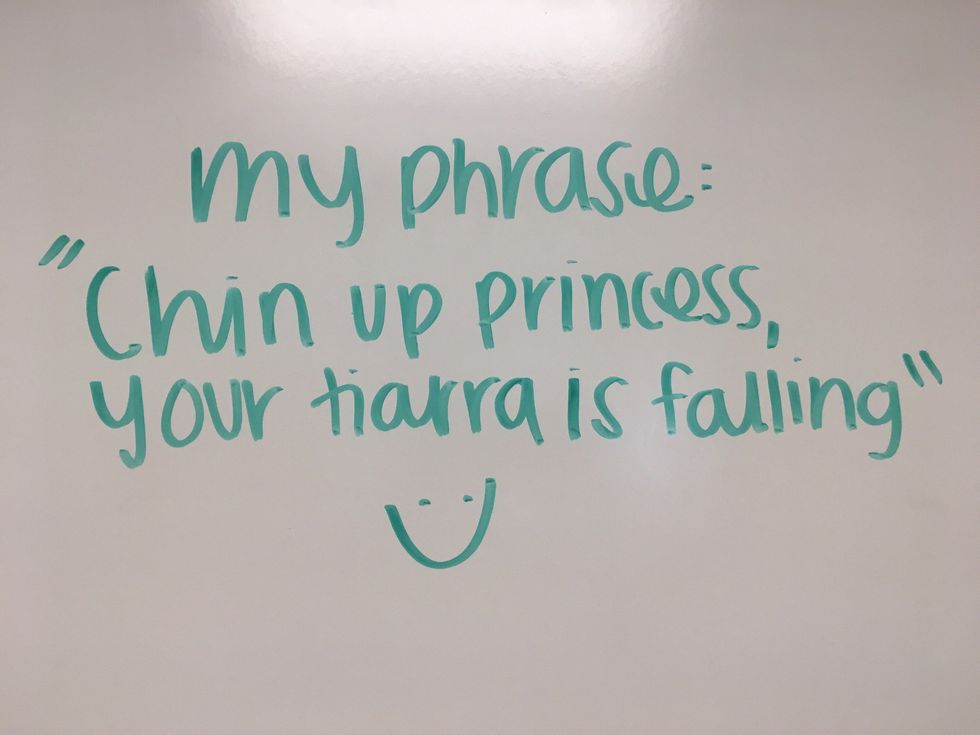 my phrase:
"Chin up princess,
your tiarra is falling"